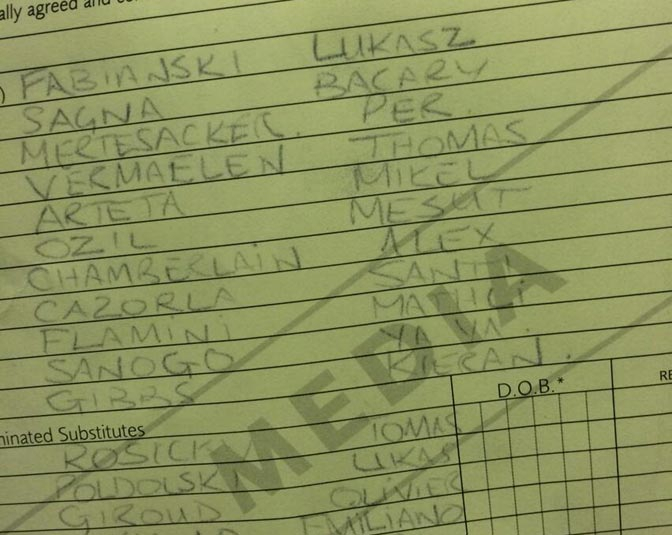 ally agreed and co
) FABIANSKI LUKASZ
SAGNA BACARY
MERTESACKER. PER.
VERMAELEN THOMAS
ARTETA MIKEL
OZIL MESUT
CHAMBERLAIN ALEX
CAZORLA SANTI
FLAMINI MATHIEU
SANOGO YAYA.
GIBBS KIERAN.
MEDIA
D.O.B.* RE
minated Substitutes
ROSICKY TOMAS
PODOLSKI LUKAS
GIROUD OLIVIER
EMILIANO